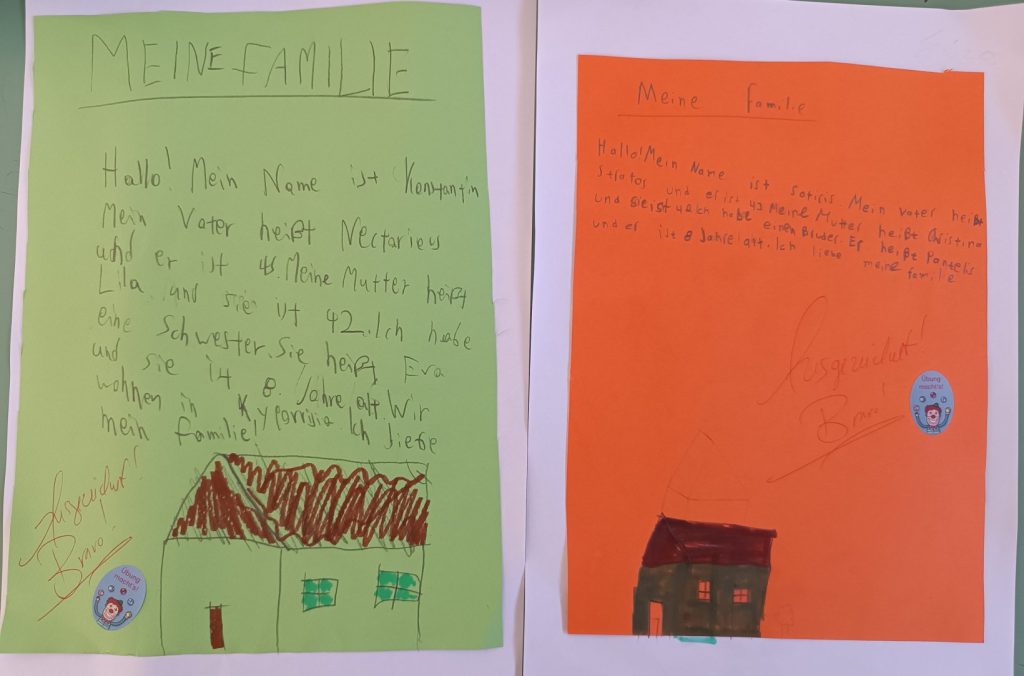 MEINE FAMILIE
Hallo! Mein Name ist Konstantin
Mein Vater heißt Nectarious
und er ist 45. Meine Mutter heißt
Lila und sie ist 42. Ich habe
eine Schwester. Sie heißt Eva
und sie ist 8. Jahre alt. Wir
wohnen in Kyparrisia Ich liebe
mein Familie!
Ausgezeichnet!
Bravo!
Übung
macht's!
Meine Familie
Hallo! Mein Name ist Sotiris. Mein vater heißt
Stratos und er ist 43. Meine Mutter heißt Christina
und sie ist 42. Ich habe einen Bruder. Er heißt Pantelis
und er ist 8 Jahre alt. Ich liebe meine familie
Ausgezeichnet!
Bravo!
Übung
macht's!